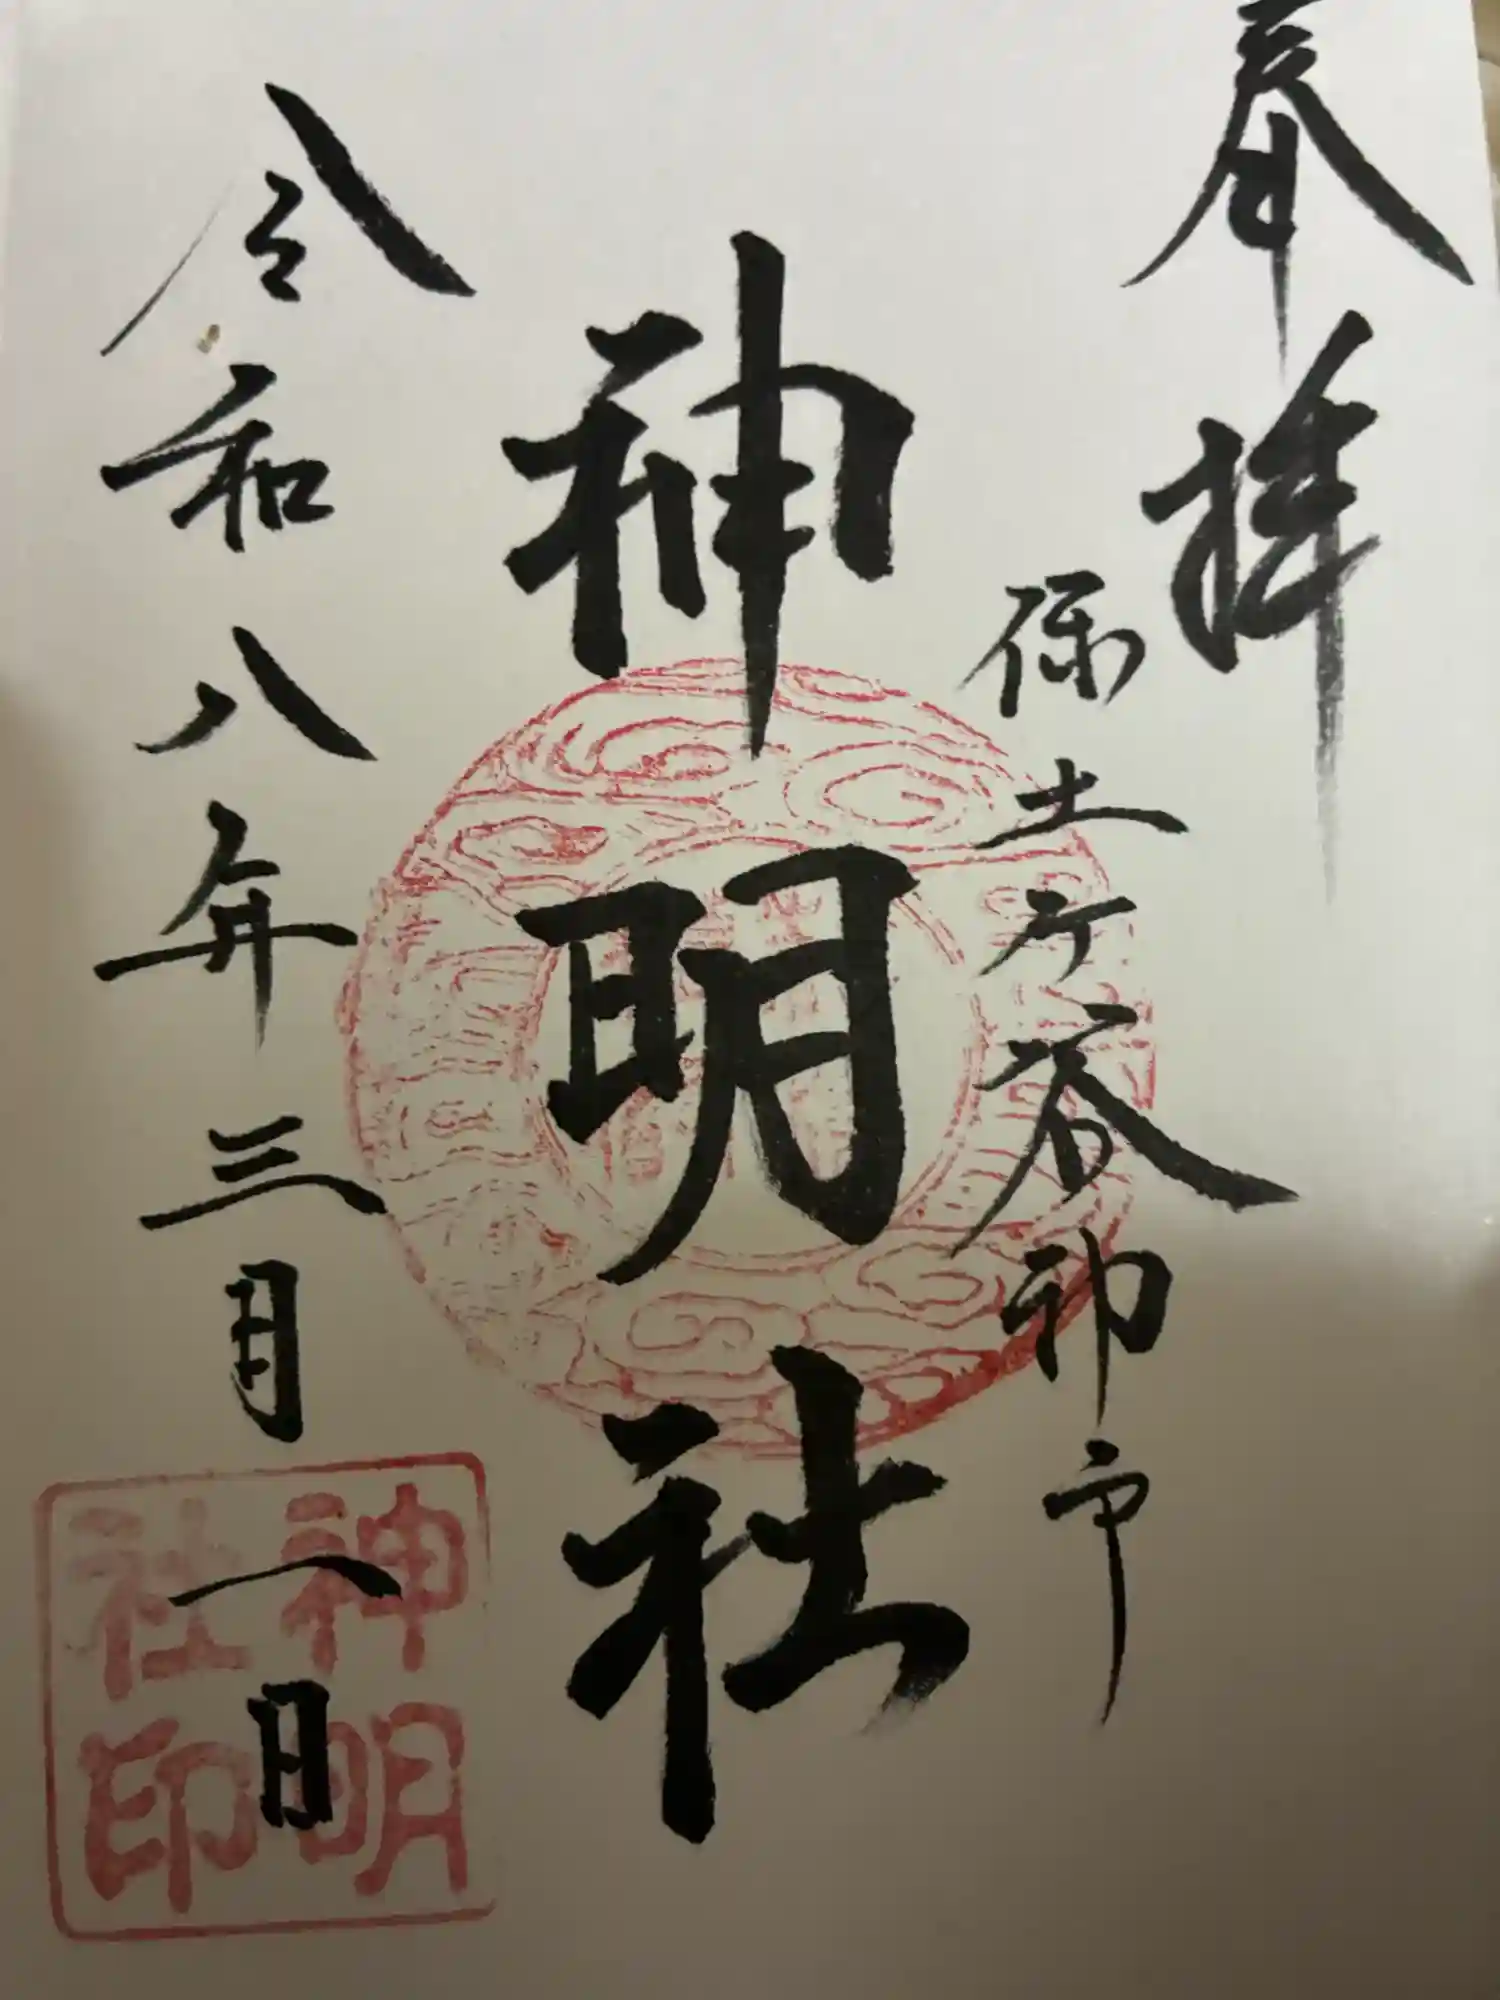 奉拝
保土ケ谷神戸
神明社
令和八年三月一日
神明
社印